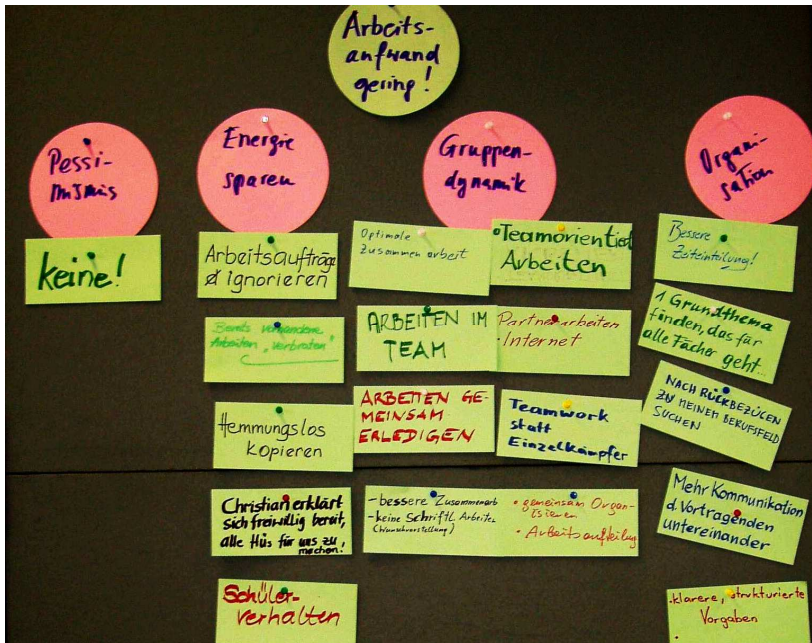 Arbeits-
aufwand
gering!
Pessi-
mismis
keine!
Energie
sparen
Arbeitsaufträge
Ø ignorieren
Bereits vorhandene
Arbeiten „verbraten"
Hemmungslos
kopieren
Christian erklärt
sich freiwillig bereit,
alle Hüs für uns zu
machen!
Schüler-
verhalten
Gruppen-
dynamik
Optimale
Zusammenarbeit
ARBEITEN IM
TEAM
ARBEITEN GE-
MEINSAM
ERLEDIGEN
-bessere Zusammenarb
-keine Schriftl. Arbeiten
(Wunschvorstellung)
•Teamorientiert
Arbeiten
Partnerarbeiten
·Internet
Teamwork
statt
Einzelkämpfer
• gemeinsam Organi-
sieren
• Arbeitsaufteilung
Organi-
sation
Bessere
Zeiteinteilung!
1 Grundthema
finden, das für
alle Fächer geht...
NACH RÜCKBEZÜGEN
ZU MEINEM BERUFSFELD
SUCHEN
Mehr Kommunikation
d. Vortragenden
untereinander
·klarere, strukturierte
Vorgaben